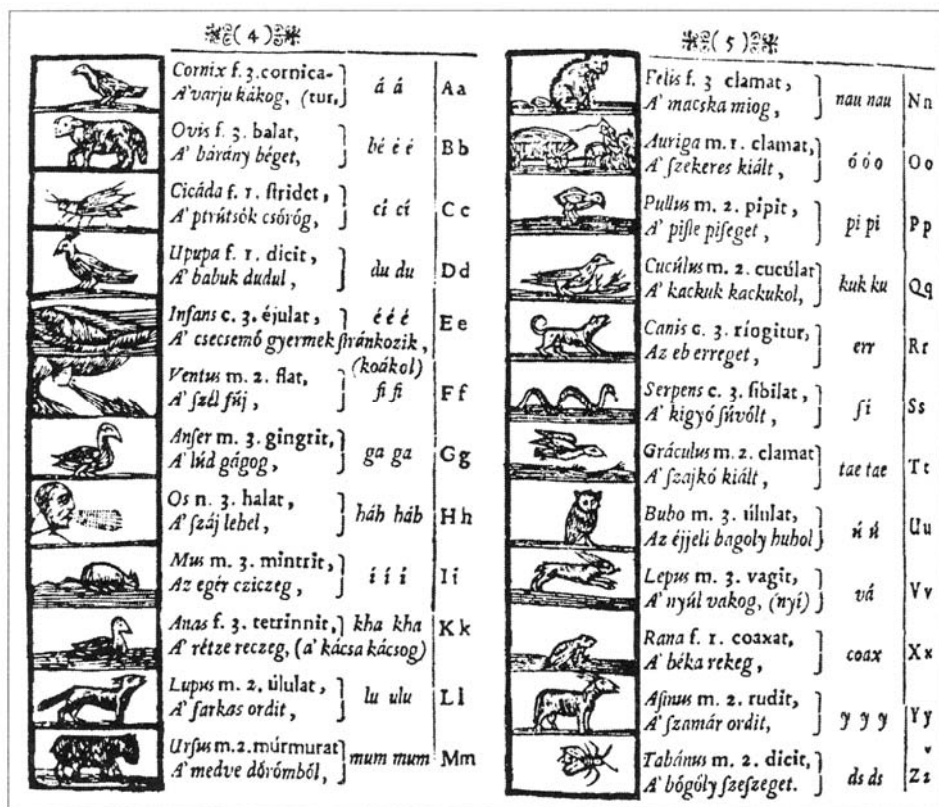 ( 4 )
Cornix f. 3. cornica-
A' varju kákog, (tur,
á á
A a
Ovis f. 3. balat,
A' bárány béget,
bé é é
B b
Cicáda f. 1. ſtridet,
A' ptrútsök csörög,
cí cí
C c
Upupa f. 1. dicit,
A' babuk dudul,
du du
D d
Infans c. 3. éjulat,
A' csecsemő gyermek ſiránkozik,
é é é
(koákol)
E e
Ventus m. 2. flat,
A' ſzél fúj,
fi fi
F f
Anſer m. 3. gingrit,
A' lúd gágog,
ga ga
G g
Os n. 3. halat,
A' ſzáj lehel,
háh háh
H h
Mus m. 3. mintrit,
Az egér cziczeg,
í í í
I i
Anas f. 3. tetrinnit,
A' rétze reczeg, (a' kácsa kácsog)
kha kha
K k
Lupus m. 2. úlulat,
A' farkas ordit,
lu ulu
L l
Urſus m. 2. múrmurat
A' medve dörömböl,
mum mum
M m
( 5 )
Felis f. 3 clamat,
A' macska miog,
nau nau
N n
Auriga m. 1. clamat,
A' ſzekeres kiált,
ó ó o
O o
Pullus m. 2. pipit,
A' piſle piſeget,
pi pi
P p
Cucúlus m. 2. cucúlat
A' kackuk kackukol,
kuk ku
Q q
Canis c. 3. ríogitur,
Az eb erreget,
err
R r
Serpens c. 3. ſibilat,
A' kigyó ſúvölt,
ſi
S s
Gráculus m. 2. clamat
A' ſzajkó kiált,
tae tae
T t
Bubo m. 3. úlulat,
Az éjjeli bagoly huhol
ú ú
U u
Lepus m. 3. vagit,
A' nyúl vakog, (nyí)
vá
V v
Rana f. 1. coaxat,
A' béka rekeg,
coax
X x
Aſinus m. 2. rudit,
A' ſzamár ordit,
y y y
Y y
Tabánus m. 2. dicit,
A' bögöly ſzeſzeget.
ds ds
Z z